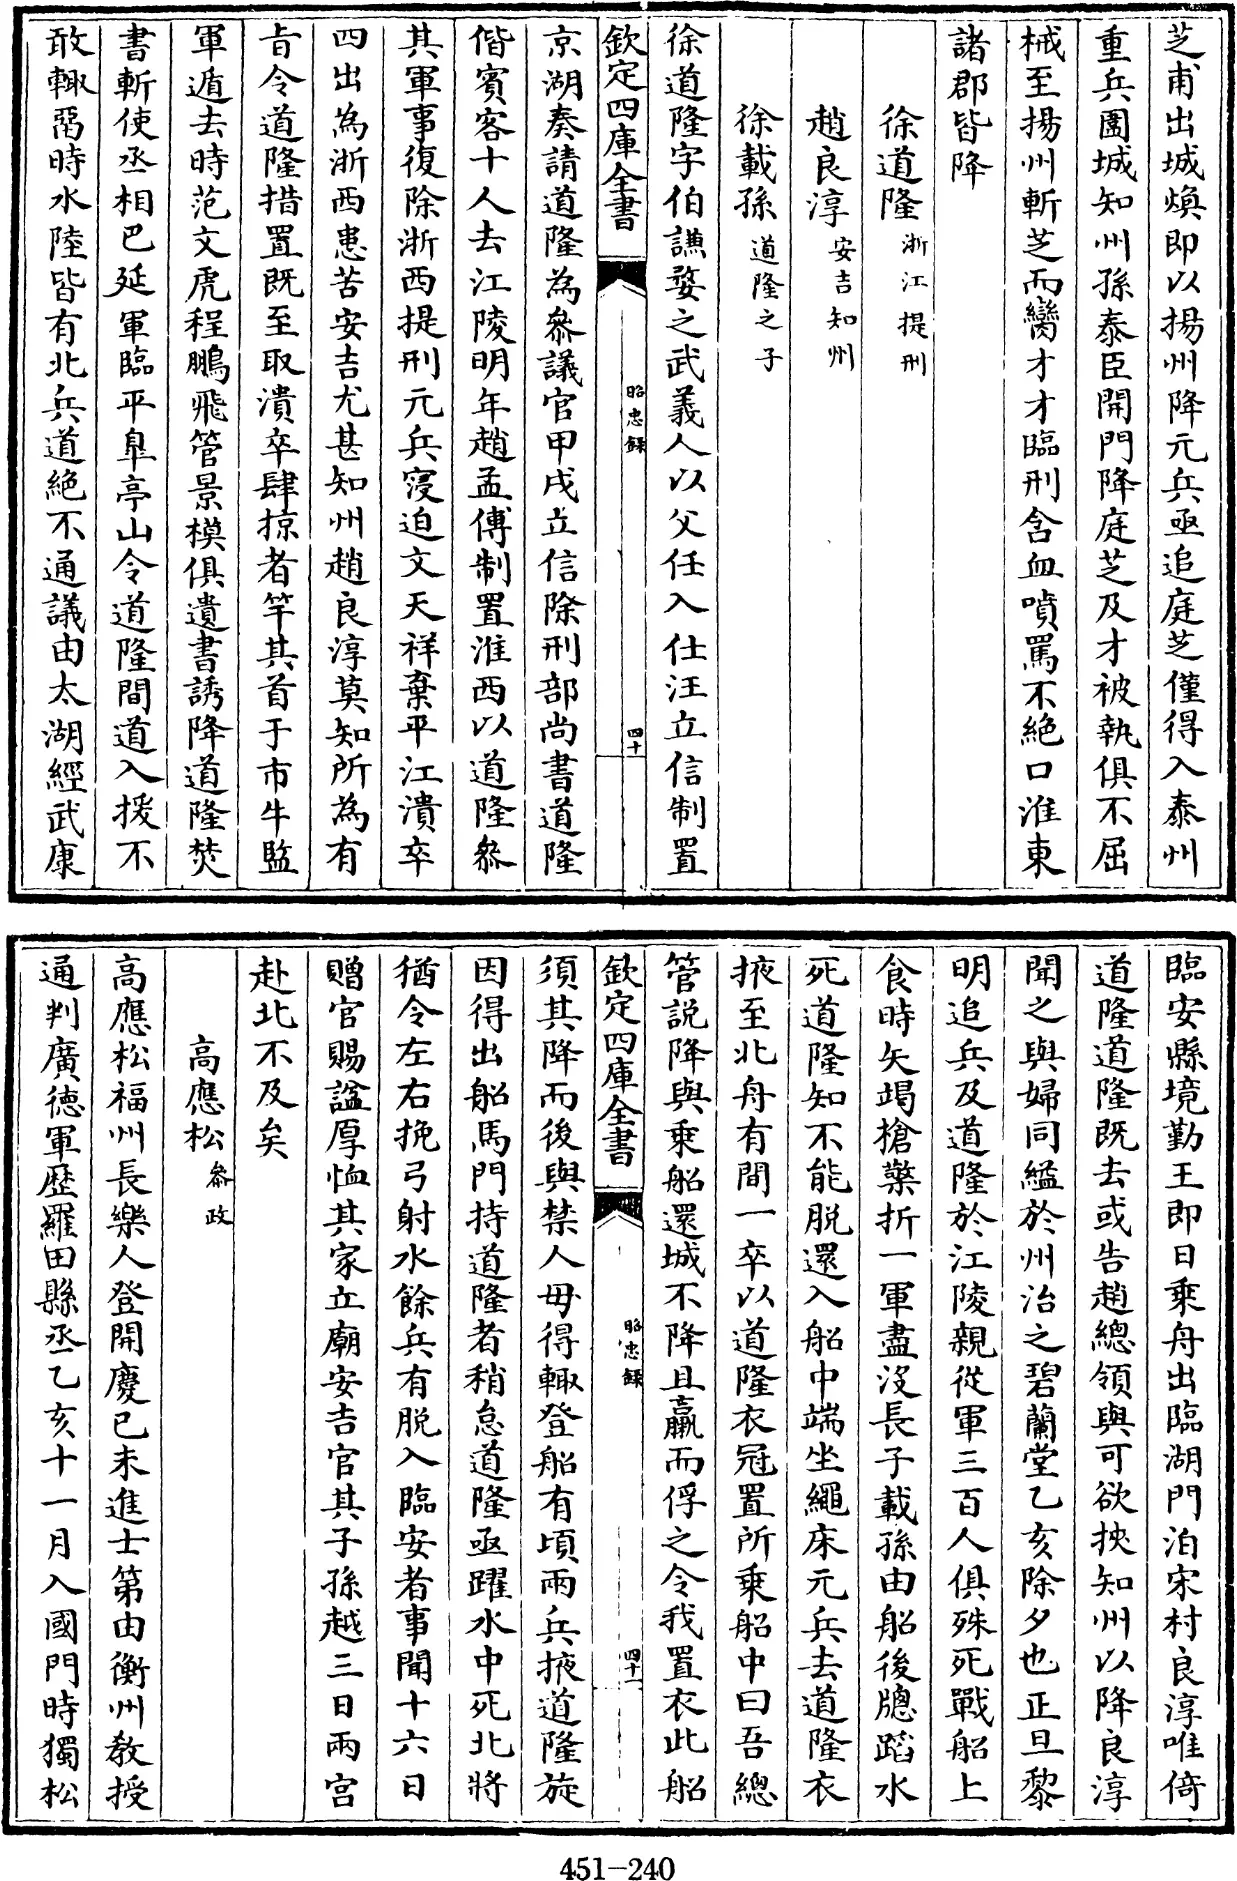 芝甫出城煥即以揚州降元兵亟追庭芝僅得入泰州
重兵圍城知州孫泰臣開門降庭芝及才被執俱不屈
械至揚州斬芝而臠才才臨刑含血噴罵不絶口淮東
諸郡皆降
徐道隆 浙江提刑
趙良淳 安吉知州
徐載孫 道隆之子
徐道隆字伯謙婺之武義人以父任入仕汪立信制置
欽定四庫全書 昭忠録 四十
京湖奏請道隆為叅議官甲戌立信除刑部尚書道隆
偕賓客十人去江陵明年趙孟傳制置淮西以道隆叅
其軍事復除浙西提刑元兵寖迫文天祥棄平江潰卒
四出為浙西患苦安吉尤甚知州趙良淳莫知所為有
㫖令道隆措置既至取潰卒肆掠者竿其首于市牛監
軍遁去時范文虎程鵬飛管景模俱遺書誘降道隆焚
書斬使丞相巴延軍臨平臯亭山令道隆間道入援不
敢輙留時水陸皆有北兵道絶不通議由太湖經武康
臨安縣境勤王即日乘舟出臨湖門泊宋村良淳唯倚
道隆道隆既去或告趙總領與可欲挾知州以降良淳
聞之與婦同縊於州治之碧蘭堂乙亥除夕也正旦黎
明追兵及道隆於江陵親從軍三百人俱殊死戰船上
食時矢竭搶藥折一軍盡沒長子載孫由船後牕蹈水
死道隆知不能脱還入船中端坐繩床元兵去道隆衣
掖至北舟有間一卒以道隆衣冠置所乘船中曰吾總
管説降與乘船還城不降且羸而俘之令我置衣此船
欽定四庫全書 昭忠録 四十一
須其降而後與禁人毋得輙登船有頃兩兵掖道隆旋
因得出船馬門持道隆者稍怠道隆亟躍水中死北將
猶令左右挽弓射水餘兵有脱入臨安者事聞十六日
贈官賜諡厚恤其家立廟安吉官其子孫越三日兩宮
赴北不及矣
高應松 叅政
高應松福州長樂人登開慶己未進士第由衡州教授
通判廣德軍歴羅田縣丞乙亥十一月入國門時獨松
451-240